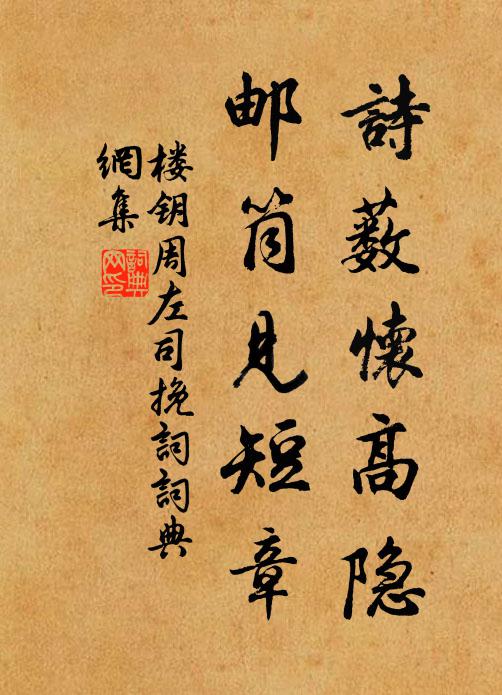 詩薮懷高隐
邮筒见短章
楼钥周左司挽詞詞典
網集
詞典网印